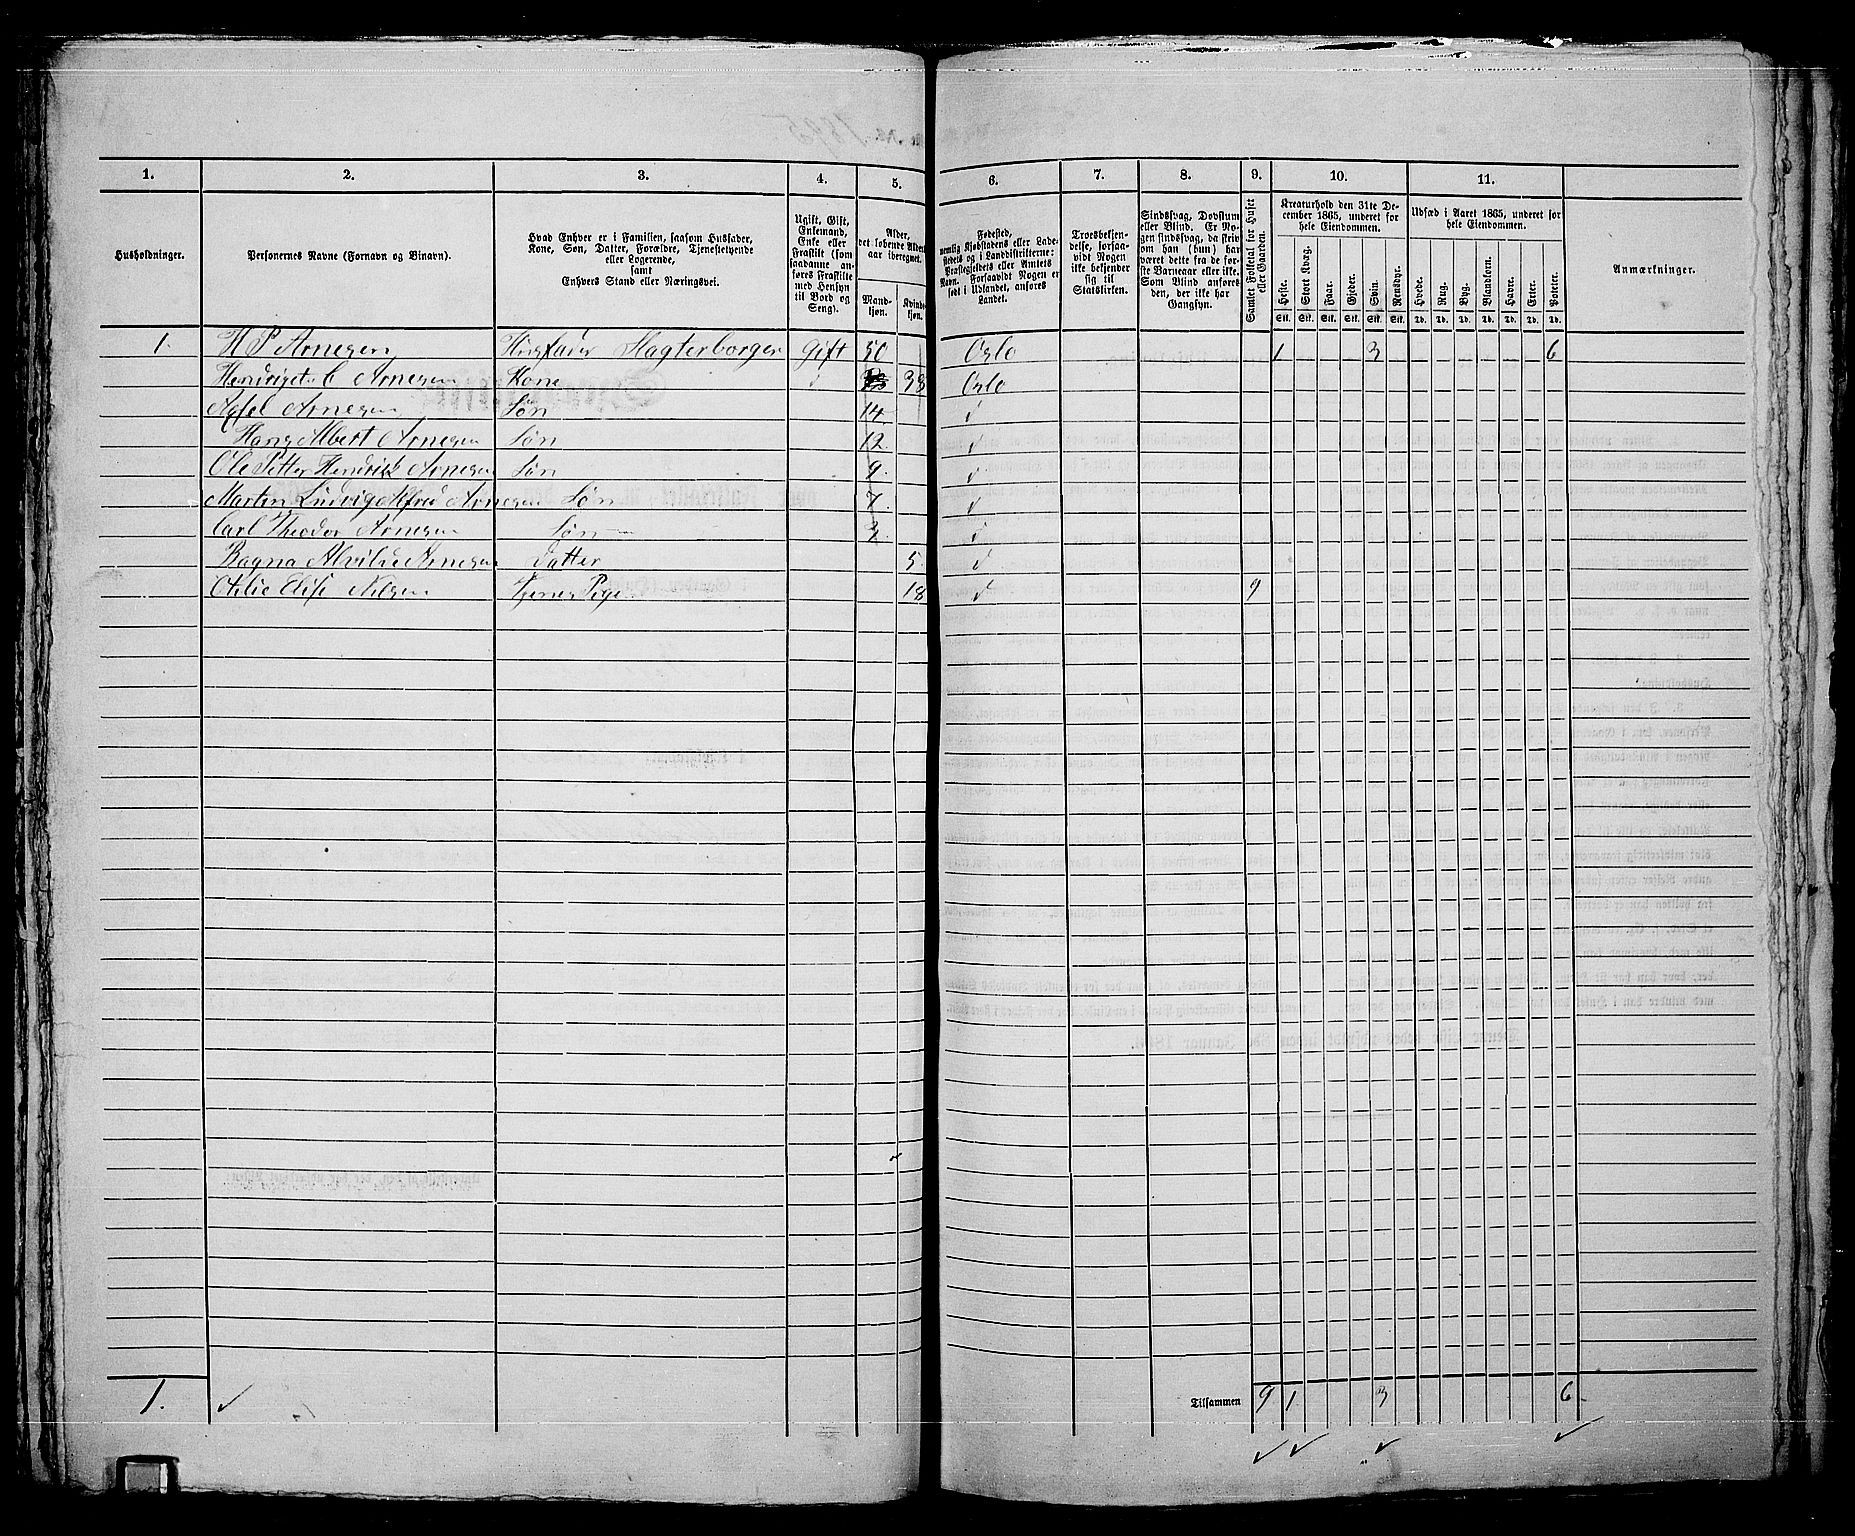 1. 2. 3. 4. 5. 6. 7. 8. 9. 10. 11.
Husholdninger.
Personernes Navne (Fornavn og Binavn).
Hvad Enhver er i Familien, saasom Husfader,
Kone, Søn, Datter, Forældre, Tjenestetyende
eller Logerende,
samt
Enhvers Stand eller Næringsvei.
Ugift, Gift,
Enkemand,
Enke eller
Fraskilt (som
saadanne an-
føres Fraskilte
med Hensyn
til Bord og
Seng).
Alder,
det løbende Alders-
aar iberegnet.
Mand-
kjøn.
Kvinde-
kjøn.
Fødested,
nemlig Kjøbstadens eller Lade-
stedets og i Landdistrikterne:
Præstegjeldets eller Amtets
Navn. Forsaavidt Nogen er
født i Udlandet, anføres
Landet.
Troesbekjen-
delse, forsaa-
vidt Nogen
ikke bekjender
sig til
Statskirken.
Sindssvag, Døvstum
eller Blind. Er No-
gen sindssvag, da skriv
om han (hun) har
været dette fra de før-
ste Barneaar eller ikke.
Som Blind anføres
den, der ikke har
Gangsyn.
Samlet Folketal for Huset
eller Gaarden.
Kreaturhold den 31te De-
cember 1865, underet for
hele Eiendommen.
Heste. Stort Kvæg. Faar. Gjeder. Svin. Rensdyr.
Stk. Stk. Stk. Stk. Stk. Stk.
Udsæd i Aaret 1865, underet for
hele Eiendommen.
Hvede. Rug. Byg. Blandkorn. Havre. Erter. Poteter.
Td. Td. Td. Td. Td. Td. Td.
Anmærkninger.
1. H P Arnesen Husfader Slagterborger Gift 50 Oslo 1 3 6
C Arnesen Kone d 38 Oslo
Axel Arnesen Søn 14 d
Hans Albert Arnesen Søn 12 d
Ole Petter Hendrik Arnesen Søn 9 d
Martin Ludvig Alfred Arnesen Søn 7 d
Carl Theodor Arnesen Søn 3 d
Ragna Alvilde Arnesen Datter 5 d
Otilie Elise Nilsen Pige 18 d 9
1. Tilsammen 9 1 3 6